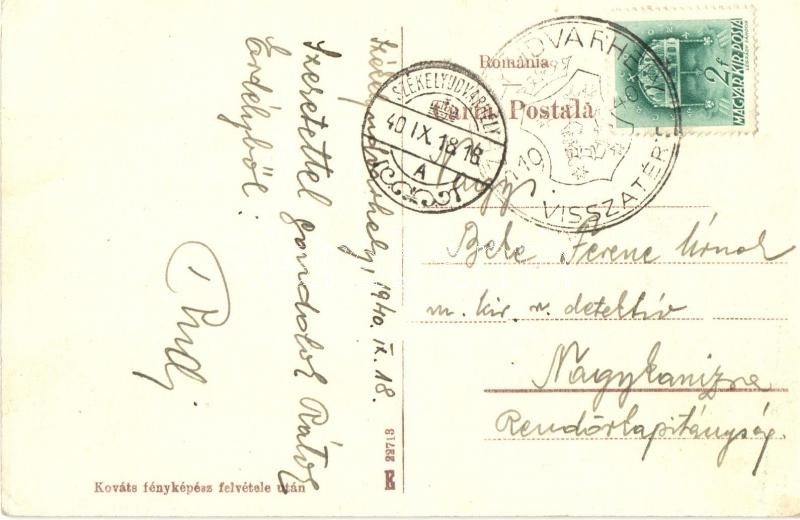 Székelyudvarhely, 1940. IX. 18.
Szeretettel gondolok Rátok
Erdélyből.
Rudi
România
Carta Postală
SZÉKELYUDVARHELY
40 IX. 18. 18
A
UDVARHELY
1940
VISSZATÉRT
2f
MAGYAR KIR. POSTA
Nagys.
Beke Ferenc Úrnak
m. kir. r. detektiv
Nagykanizsa
Rendőrkapitányság.
K 22713
Kováts fényképész felvétele után